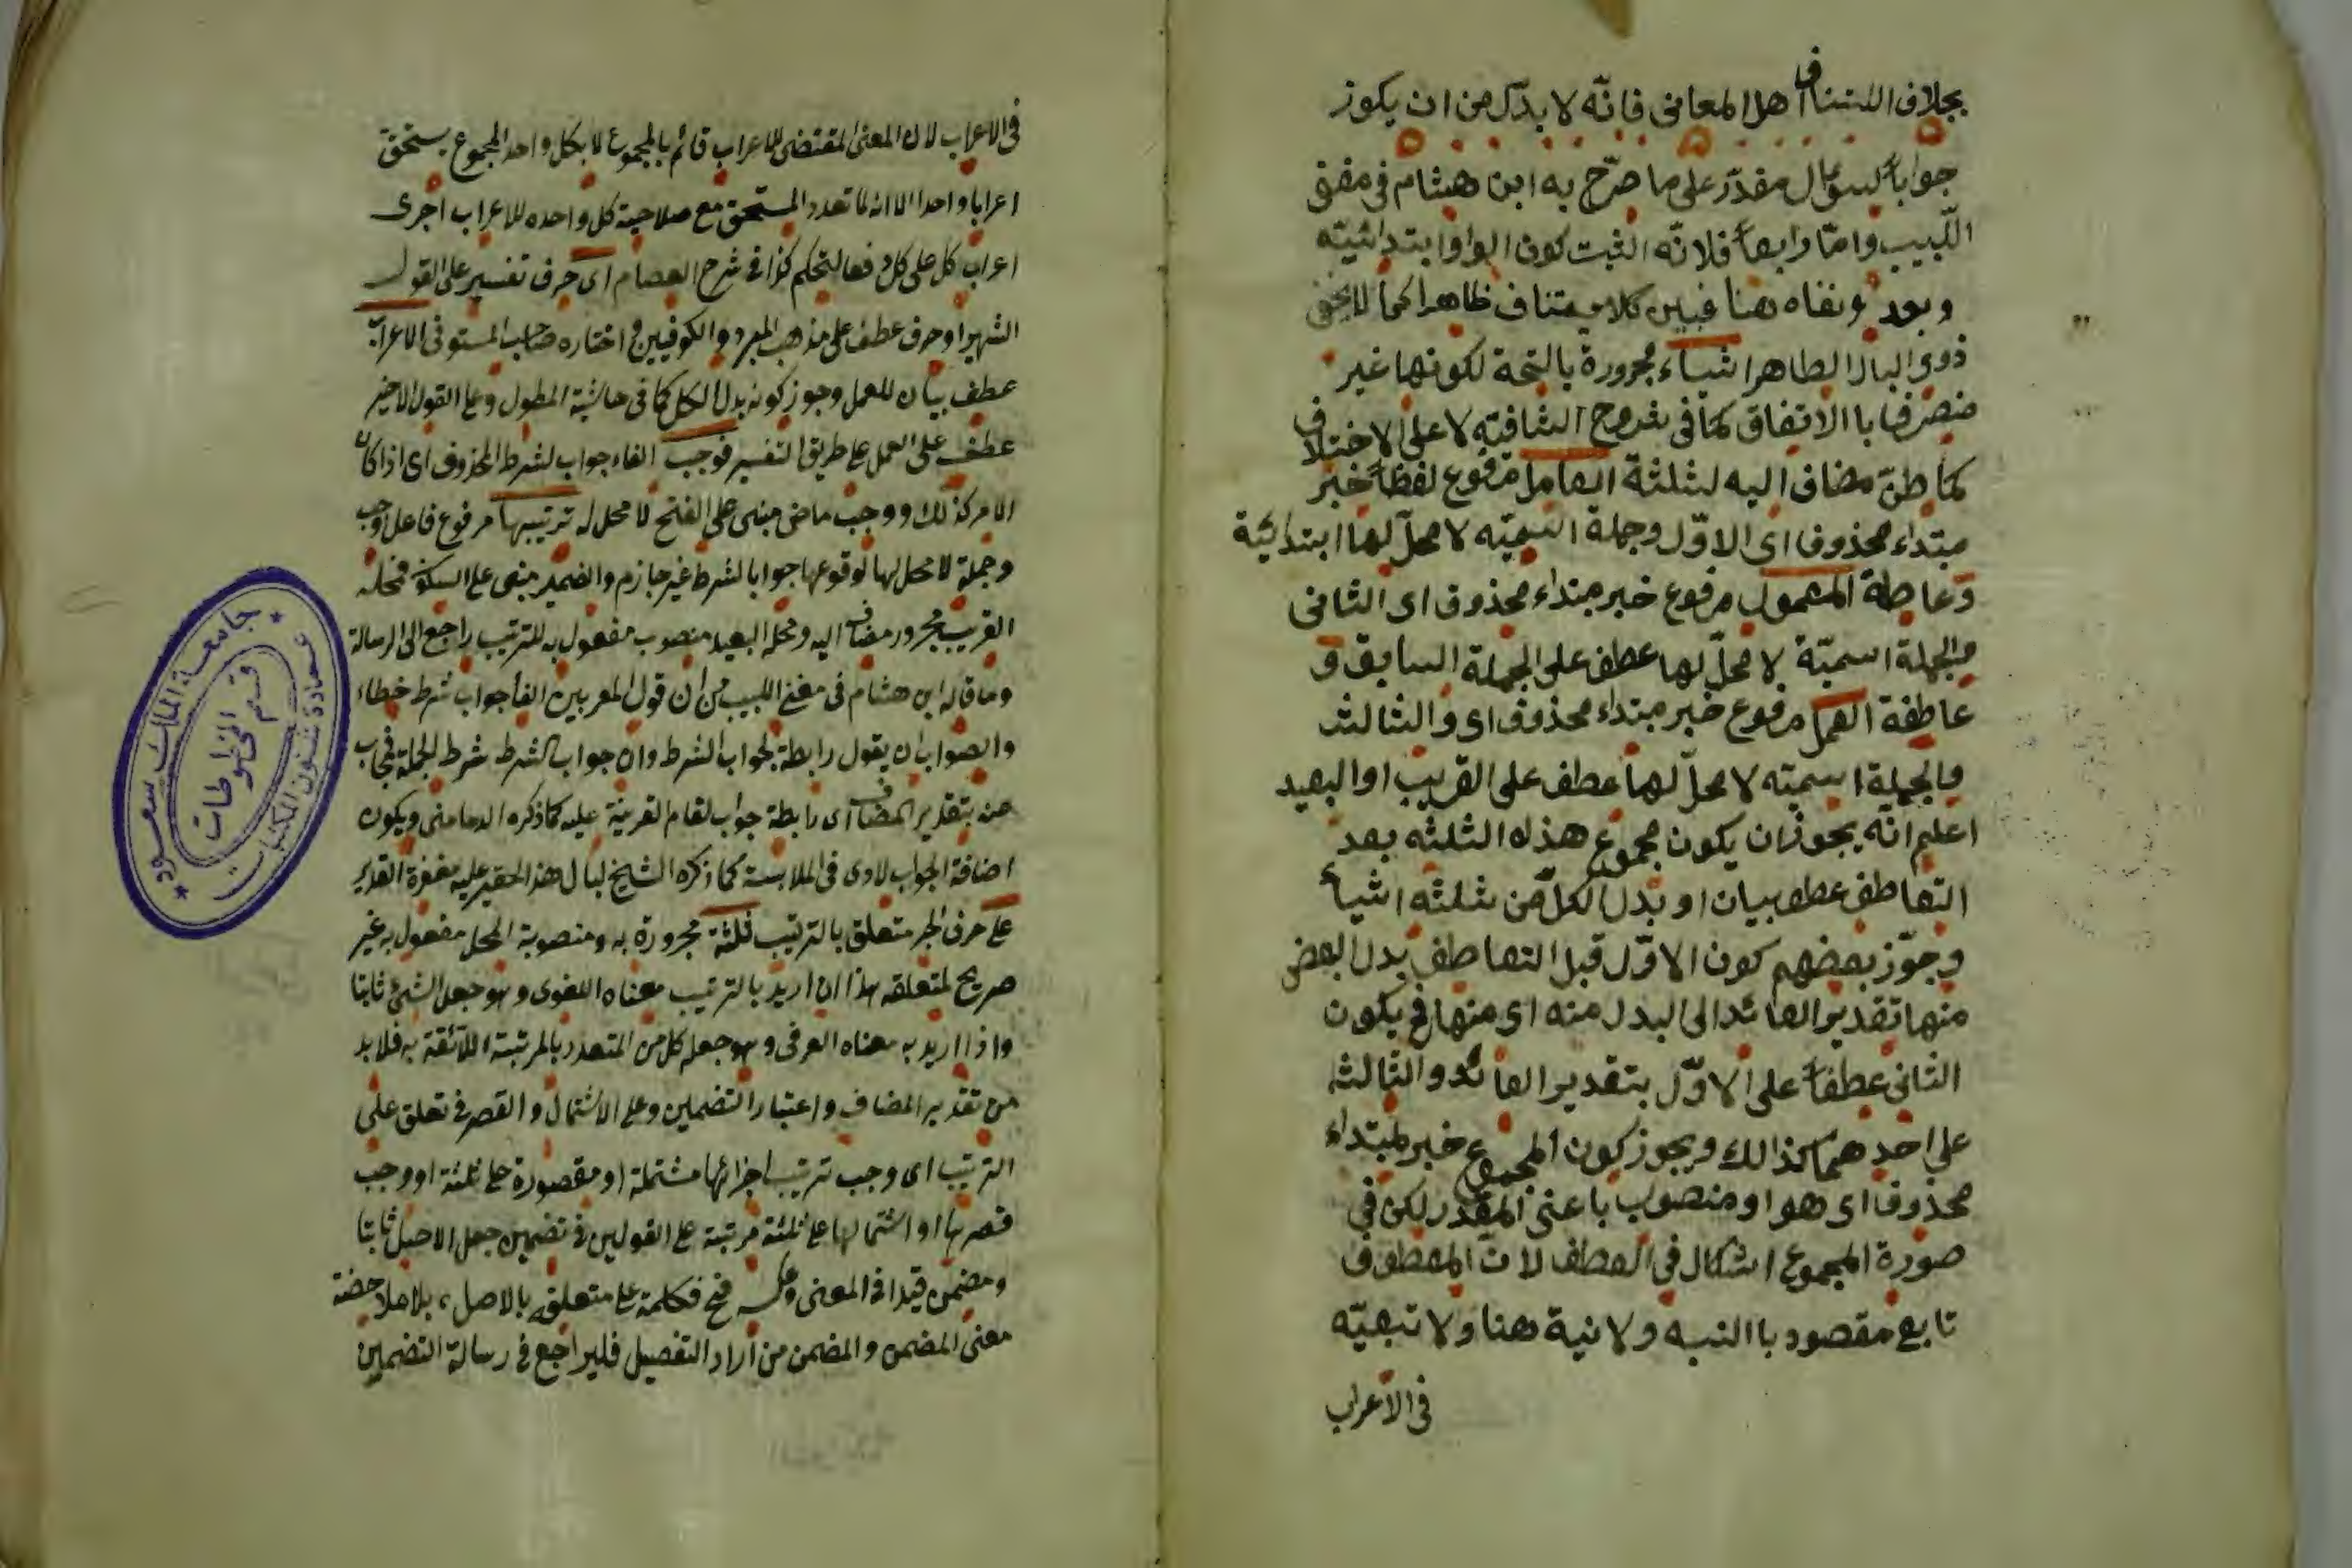 بخلاف استيناف اهل المعانى فانّه لا بدّ له من ان يكون
جواباً لسؤال مقدّر على ما صرّح به ابن هشام فى مغنى
اللّبيب وامّا رابعاً فلانّه اثبت كون الواو ابتدائيّه
وبعد ونفاه هنا فبين كلاميه تناف ظاهرا كما لا يخفى
ذوى البال الطاهر اشياء مجرورة بالفتحة لكونها غير
منصرف با الاتفاق كما فى شروح الشافيّه لا على الاختلاف
كما ظنّ مضاف اليه لثلثة العامل مرفوع لفظاً خبر
مبتداء محذوف اى الاوّل وجملة اسميّه لا محلّ لها ابتدائيّة
وعاطفة المعمول مرفوع خبر مبتداء محذوف اى الثانى
والجملة اسميّة لا محلّ لها عطف على الجملة السابق و
عاطفة العمل مرفوع خبر مبتداء محذوف اى والثالث
والجملة اسميّه لا محلّ لها عطف على القريب او البعيد
اعلم انّه يجوز ان يكون مجموع هذه الثلثه بعد
التعاطف عطف بيان او بدل الكلّ من ثلثه اشياء
وجوّز بعضهم كون الاوّل قبل التعاطف بدل البعض
منها تقدير العائد الى البدل منه اى منها فح يكون
الثانى عطفاً على الاوّل بتقدير العائد والثالث
على احدهما كذالك ويجوز كون المجموع خبر لمبتداء
محذوف اى هو او منصوب باعنى المقدّر لكن فى
صورة المجموع اشكال فى العطف لانّ المعطوف
تابع مقصود با النسبه ولا نسبة هنا ولا تبعيّه
فى الاعراب
فى الاعراب لان المعنى المقتضى للاعراب قائم بالمجموع لا بكل واحد المجموع يستحق
اعرابا واحدا الا انه لما تعدد المستحق مع صلاحية كل واحده للاعراب اجرى
اعراب كل على كل دفعا لتحكم كذا فى شرح العصام اى حرف تفسير على القول
الشهير او حرف عطف على مذهب المبرد والكوفيين واختاره صاحب المستوفى الاعراب
عطف بيان للعمل وجوز كونه بدل الكل كما فى حاشية المطول وعلى القول الاخير
عطف على العمل على طريق التفسير فوجب الفاء جواب لشرط المحذوف اى اذا كان
الامر كذلك ووجب ماضى مبنى على الفتح لا محل له ترتيبها مرفوع فاعل وجب
وجملة لا محل لها لوقوعها جوابا لشرط غير جازم والضمير مبنى على السكون فمحله
القريب مجرور مضاف اليه ومحله البعيد منصوب مفعول به للترتيب راجع الى الرسالة
وما قاله ابن هشام فى مغنى اللبيب من ان قول المعربين الفا جواب شرط خطاء
والصواب ان يقول رابطة لجواب الشرط وان جواب الشرط شرط الجملة فيجاب
عنه بتقدير المضاف اى رابطة جواب لقام القرينة عليه كما ذكره الدمامنى ويكون
اضافة الجواب لادى فى الملابسة كما ذكره الشيخ لبال هذ الحقير عليه مغفرة القدير
على حرف الجر متعلق بالترتيب ثلثة مجرورة به ومنصوبة المحل مفعول به غير
صريح لمتعلقه هذا ان اريد بالترتيب معناه اللغوى وهو جعل الشئ ثابتا
واذا اريد به معناه العرفى وهو جعل كل من المتعدد بالمرتبة اللائقة به فلا بد
من تقدير المضاف واعتبار التضمين وعلى الاشتمال والقصر فى تعلق على
الترتيب اى وجب ترتيب اجزائها مشتملة او مقصورة على ثلثة او وجب
قصرها او اشتمالها على ثلثة مرتبة على القولين فى تضمين جعل الاصل ثابتا
ومضمن قيدا فى المعنى وعكسه فح فكلمة على متعلق بالاصل بلا ملاحضة
معنى المضمن والمضمن من اراد التفصيل فليراجع فى رسالة التضمين
جامعة الملك سعود
عمادة شئون المكتبات
قسم المخطوطات